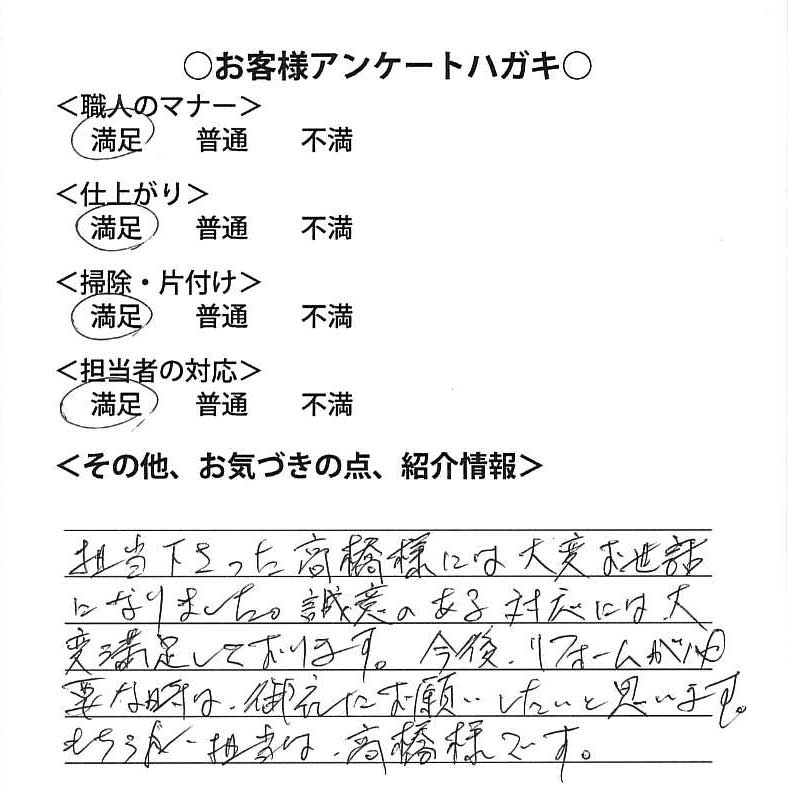 ○お客様アンケートハガキ○
＜職人のマナー＞
満足 普通 不満
＜仕上がり＞
満足 普通 不満
＜掃除・片付け＞
満足 普通 不満
＜担当者の対応＞
満足 普通 不満
＜その他、お気づきの点、紹介情報＞
担当下さった高橋様には大変お世話
になりました。誠意のある対応には大
変満足しております。今後、リフォームが必
要な時は、御社にお願いしたいと思います。
もちろん担当は、高橋様です。